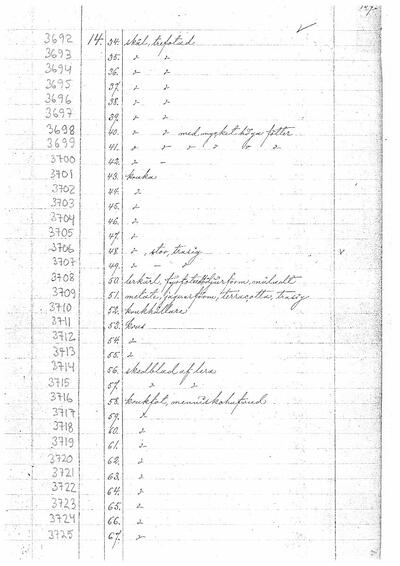 147.
3692 14. 34. skål, trefotad
3693 35. " "
3694 36. " "
3695 37. " "
3696 38. " "
3697 39. " "
3698 40. " " med mycket höga fötter
3699 41. " " " " " "
3700 42. " –
3701 43. kruka
3702 44. "
3703 45. "
3704 46. "
3705 47. "
3706 48. " , stor, trasig
3707 49. " – "
3708 50. lerkärl, måladt
3709 51. metate, jaguarform, terracotta, trasig
3710 52. krukhållare
3711 53. krus
3712 54. "
3713 55. "
3714 56. skedblad af lera
3715 57. " "
3716 58. krukfot, menniskohufvud
3717 59. "
3718 60. "
3719 61. "
3720 62. "
3721 63. "
3722 64. "
3723 65. "
3724 66. "
3725 67. "